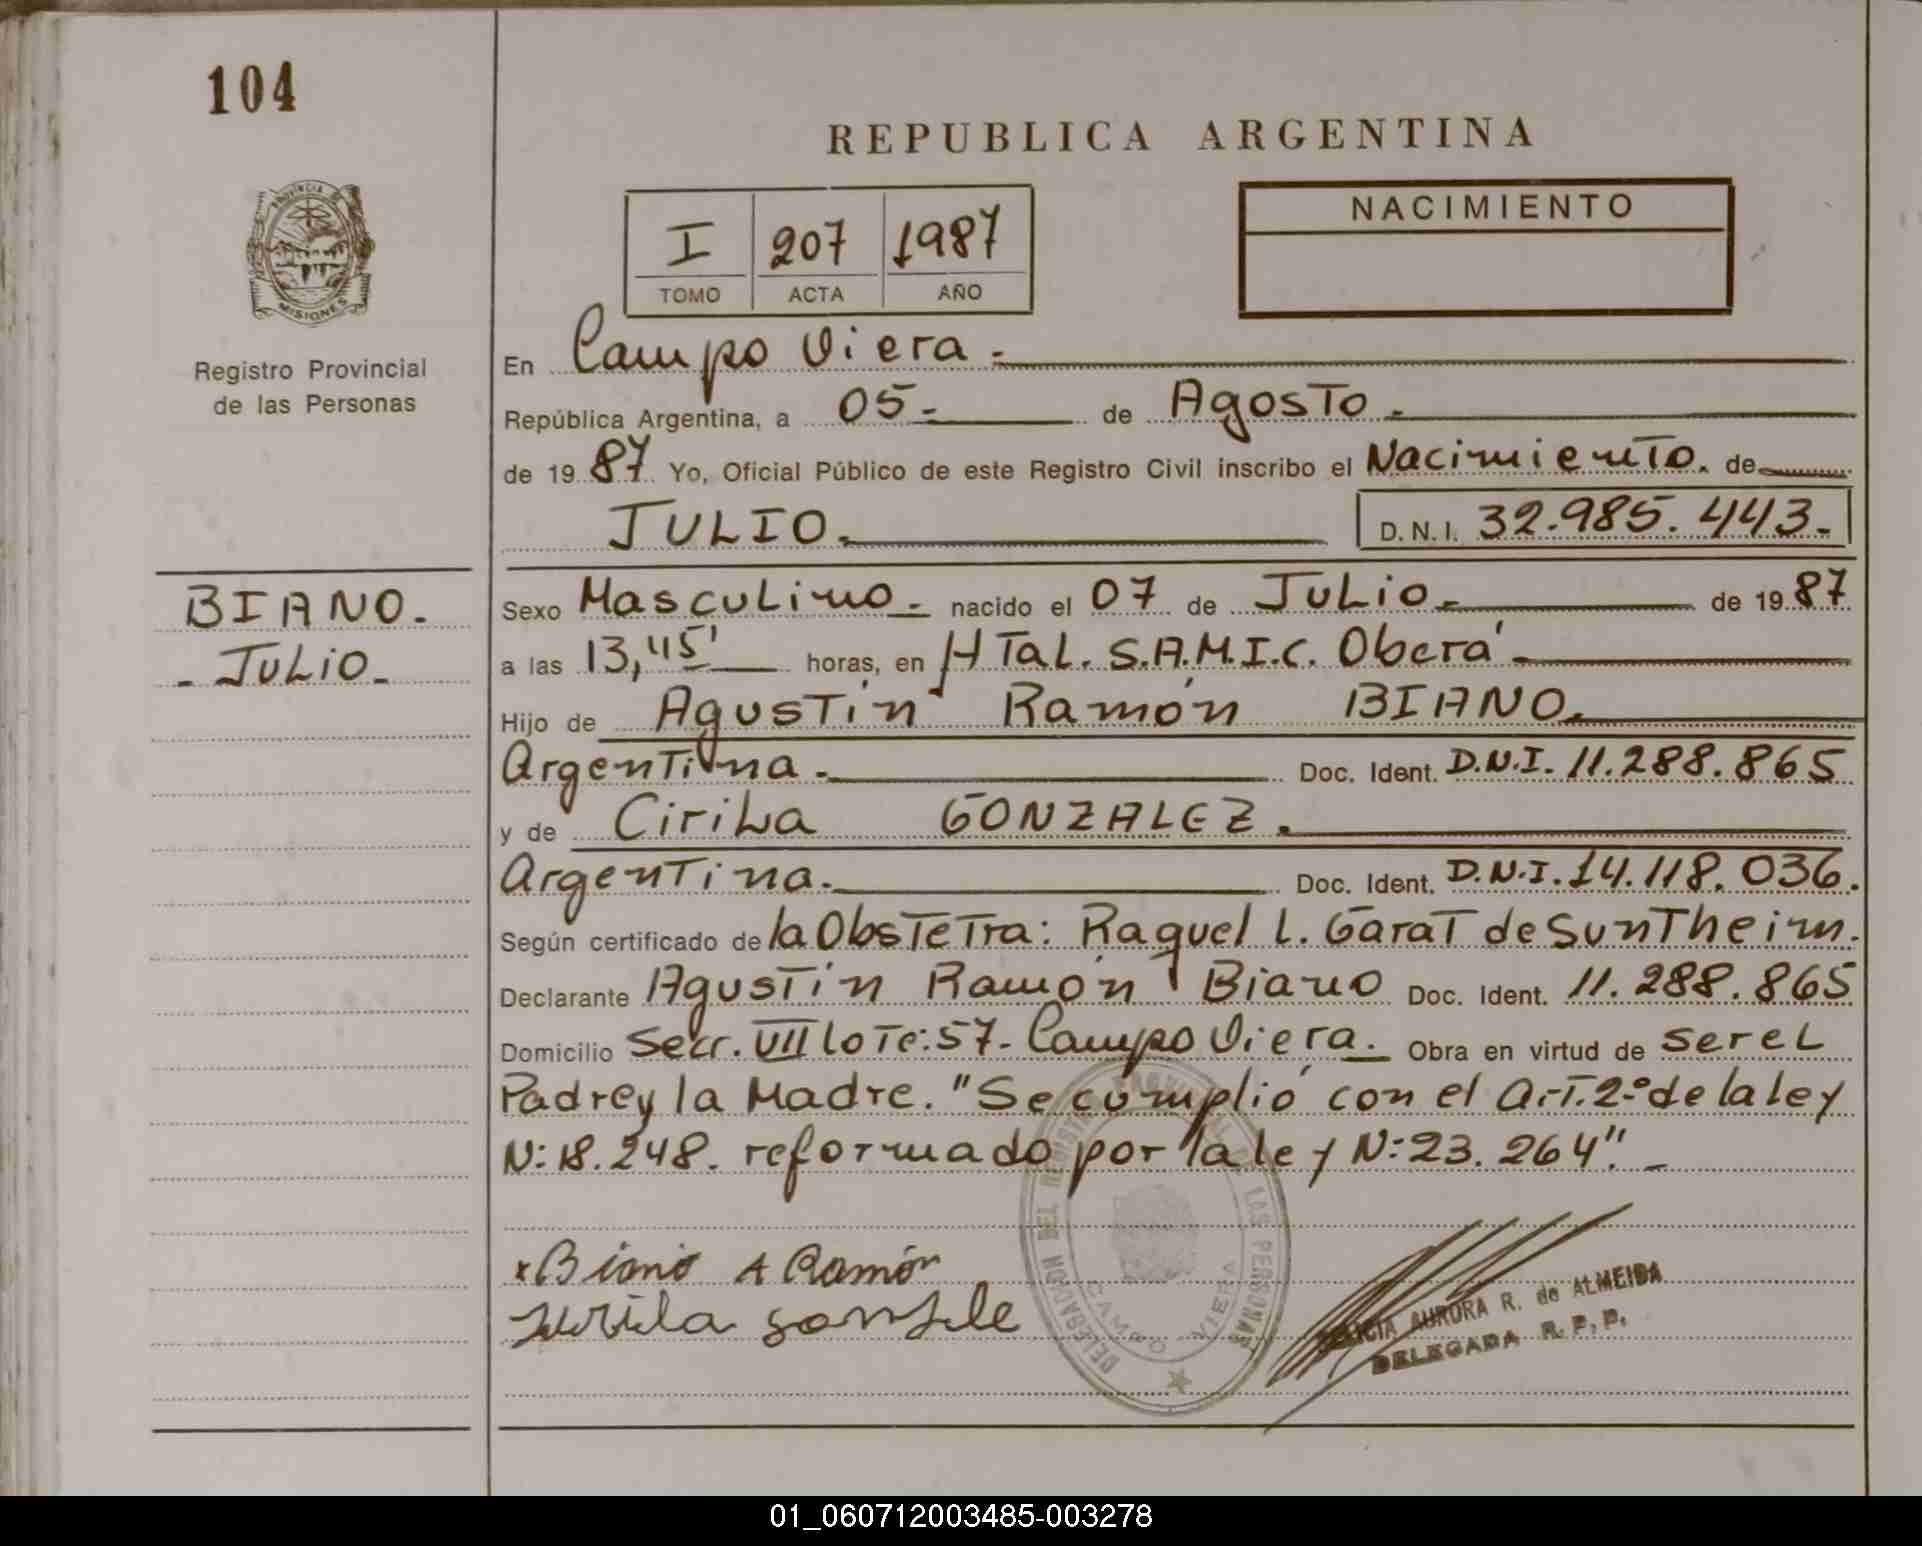 104
REPUBLICA ARGENTINA
PROVINCIA DE
MISIONES
Registro Provincial
de las Personas
I 207 1987
TOMO ACTA AÑO
NACIMIENTO
En Campo Viera.-
República Argentina, a 05- de Agosto.-
de 1987 Yo, Oficial Público de este Registro Civil inscribo el Nacimiento. de
JULIO.- D.N.I. 32.985.443.-
BIANO.-
- JULIO -
Sexo Masculino.- nacido el 07 de Julio.- de 1987
a las 13,45' horas, en HTal. S.A.M.I.C. Oberá.-
Hijo de Agustín Ramón BIANO.
Argentina.- Doc. Ident. D.N.I. 11.288.865
y de Cirila GONZALEZ.
Argentina.- Doc. Ident. D.N.I. 14.118.036.
Según certificado de la Obstetra: Raquel L. Garat de Suntheim.
Declarante Agustín Ramón Biano Doc. Ident. 11.288.865
Domicilio Secc. VII lote: 57- Campo Viera.- Obra en virtud de ser el
Padre y la Madre. "Se cumplió con el Art. 2º de la ley
N: 18.248. reformado por la ley N: 23.264". -
x Biano A Ramón
DELEGACION DEL REGISTRO PROVINCIAL DE LAS PERSONAS
CAMPO VIERA
AURORA R. de ALMEIDA
DELEGADA R. P. P.
01_060712003485-003278